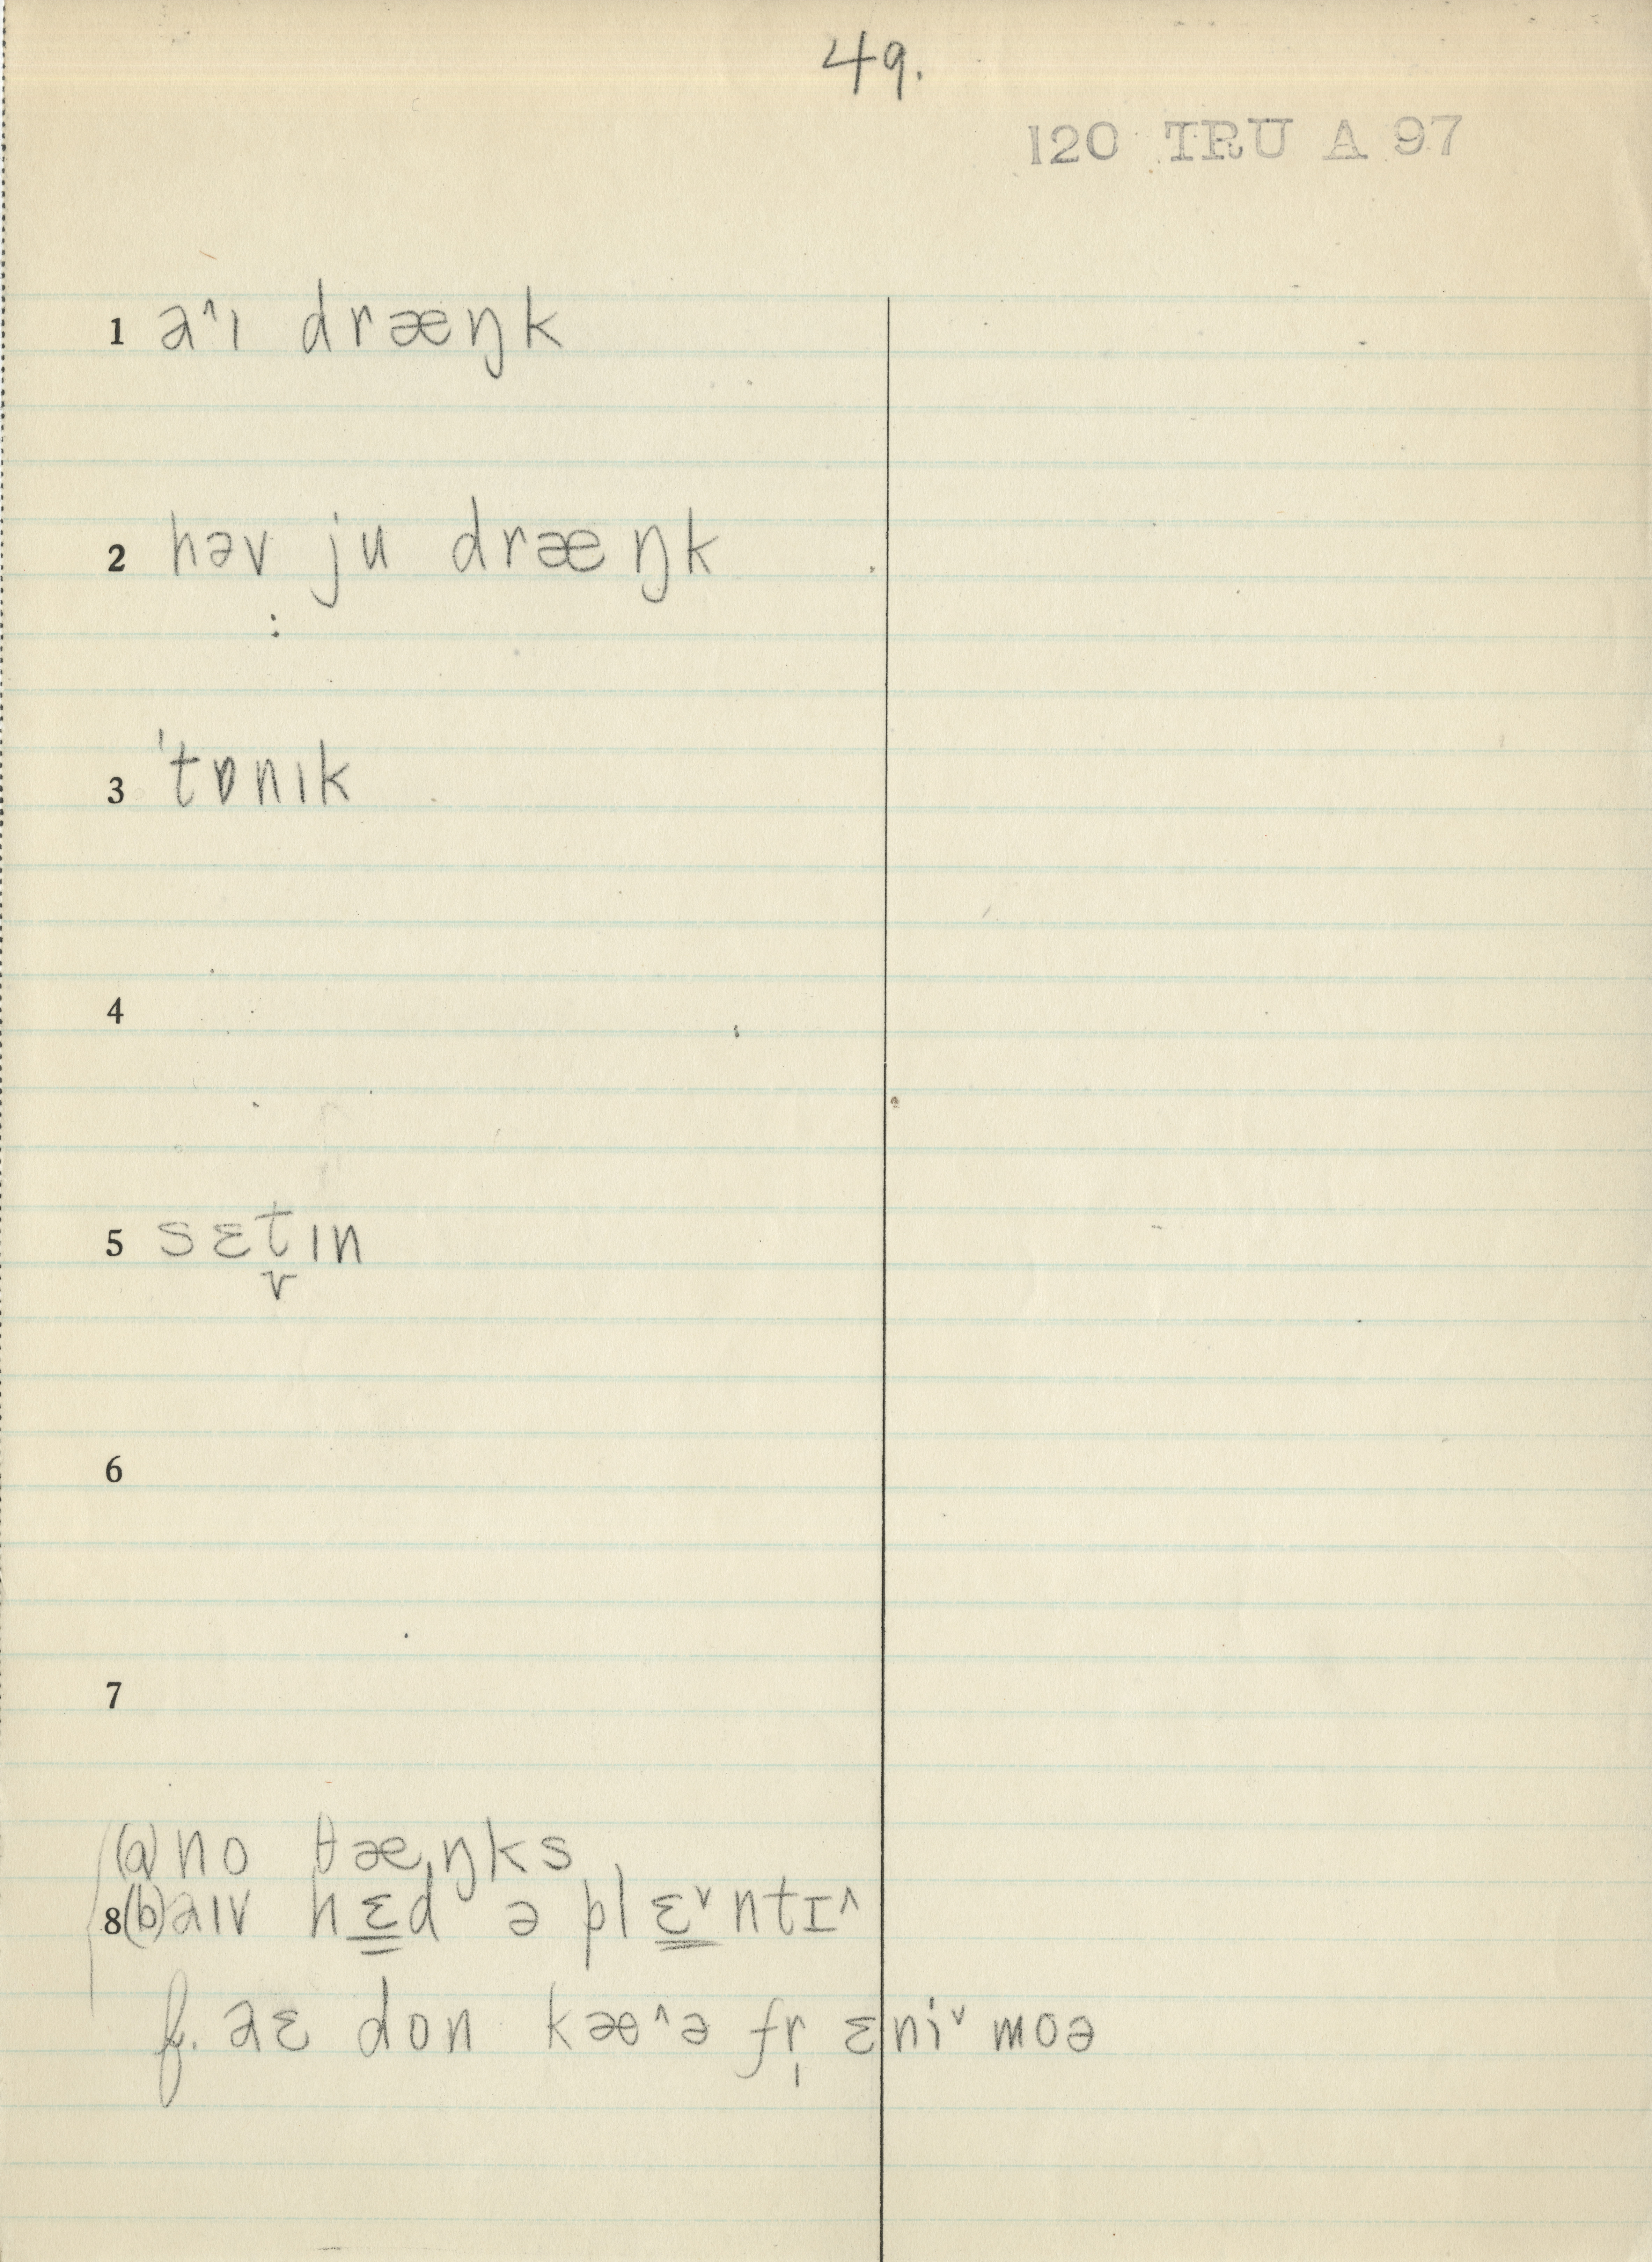 49.
120 TRU A 97
1 a^ɪ dræŋk
2 həv ju dræŋk
3 ˈtɒnɪk
4
5 sɛt̬ɪn
6
7
(a) no θæˌŋks
8(b) aɪv hɛ̳d ə plɛ̳ˇntɪ^
f. aɛ don kæ^ə fr̩ ɛniˇ moə